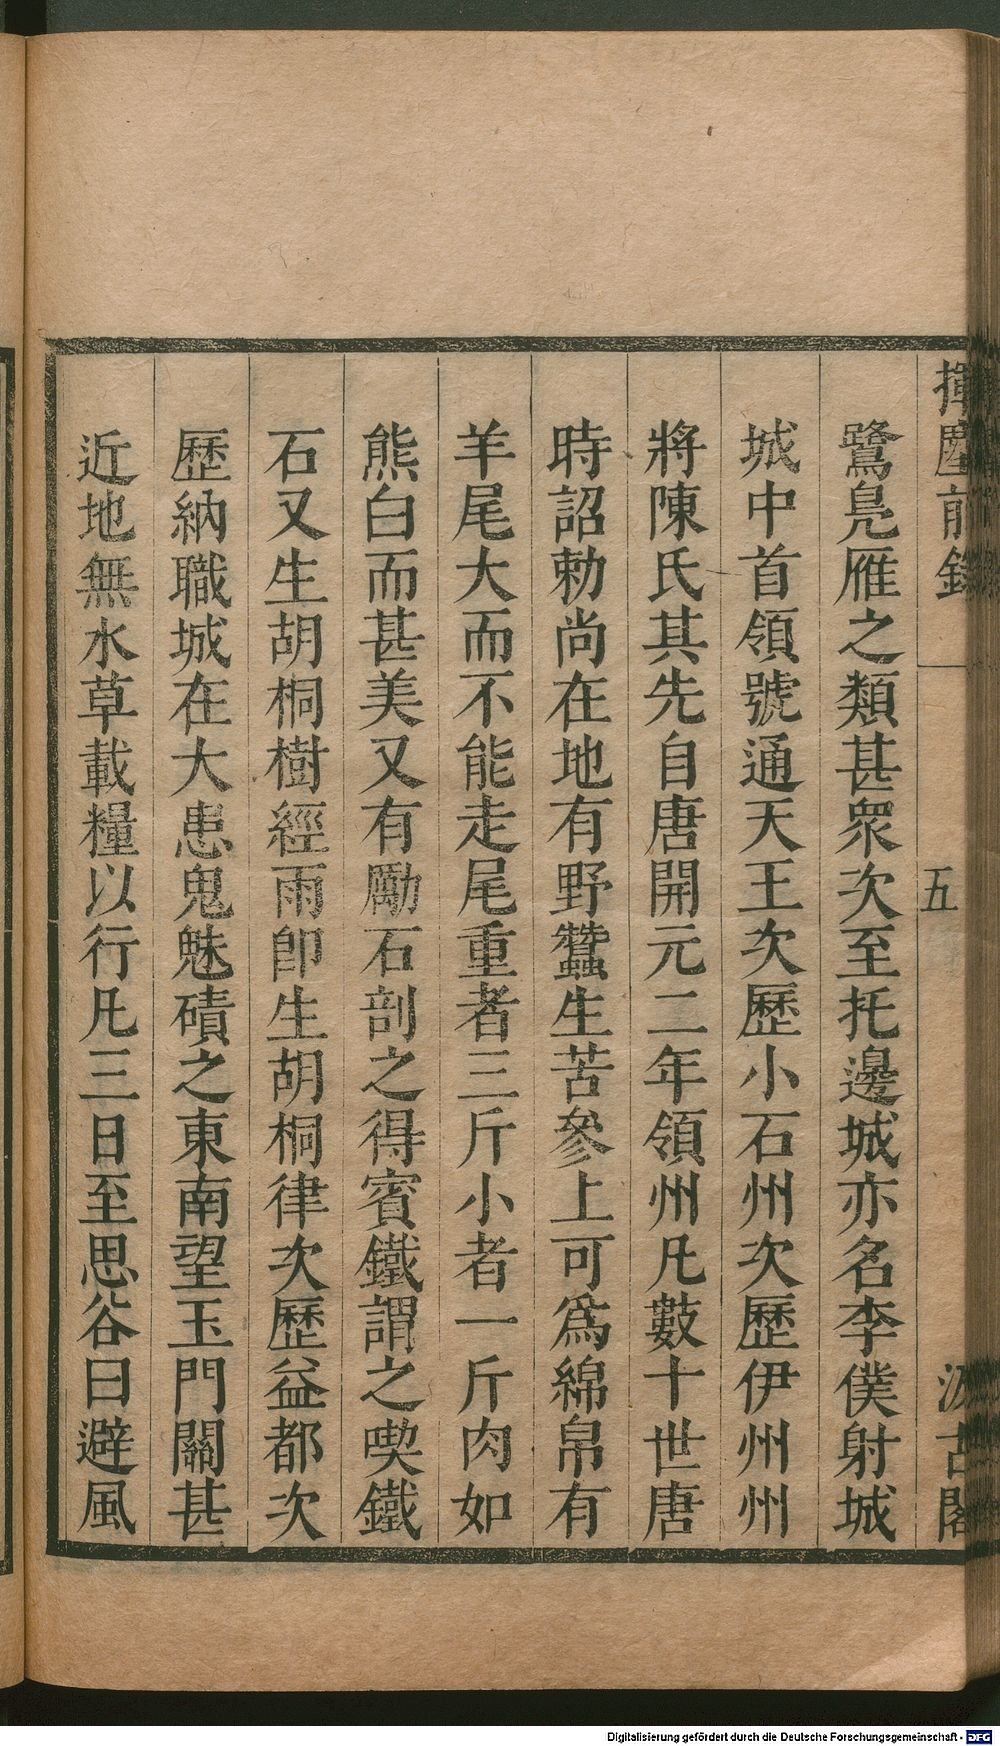 揮麈前錄
五
汲古閣
鷺鳧雁之類甚衆次至托邊城亦名李僕射城
城中首領號通天王次歷小石州次歷伊州州
將陳氏其先自唐開元二年領州凡數十世唐
時詔勅尚在地有野蠶生苦參上可爲綿帛有
羊尾大而不能走尾重者三斤小者一斤肉如
熊白而甚美又有勵石剖之得賓鐵謂之喫鐵
石又生胡桐樹經雨卽生胡桐律次歷益都次
歷納職城在大患鬼魅磧之東南望玉門關甚
近地無水草載糧以行凡三日至思谷曰避風
Digitalisierung gefördert durch die Deutsche Forschungsgemeinschaft - DFG